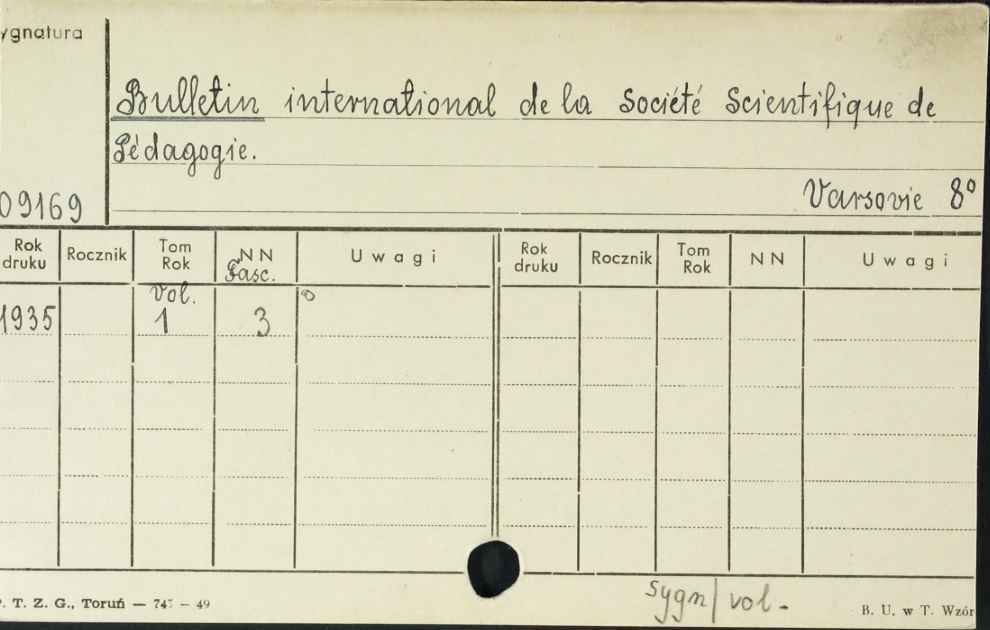 ygnatura
Bulletin international de la Société Scientifique de
Pédagogie.
09169
Varsovie 8°
Rok druku Rocznik Tom Rok NN Fasc. Uwagi Rok druku Rocznik Tom Rok NN Uwagi
vol.
1935 1 3
sygn/vol.
P. T. Z. G., Toruń — 49
B. U. w T. Wzór